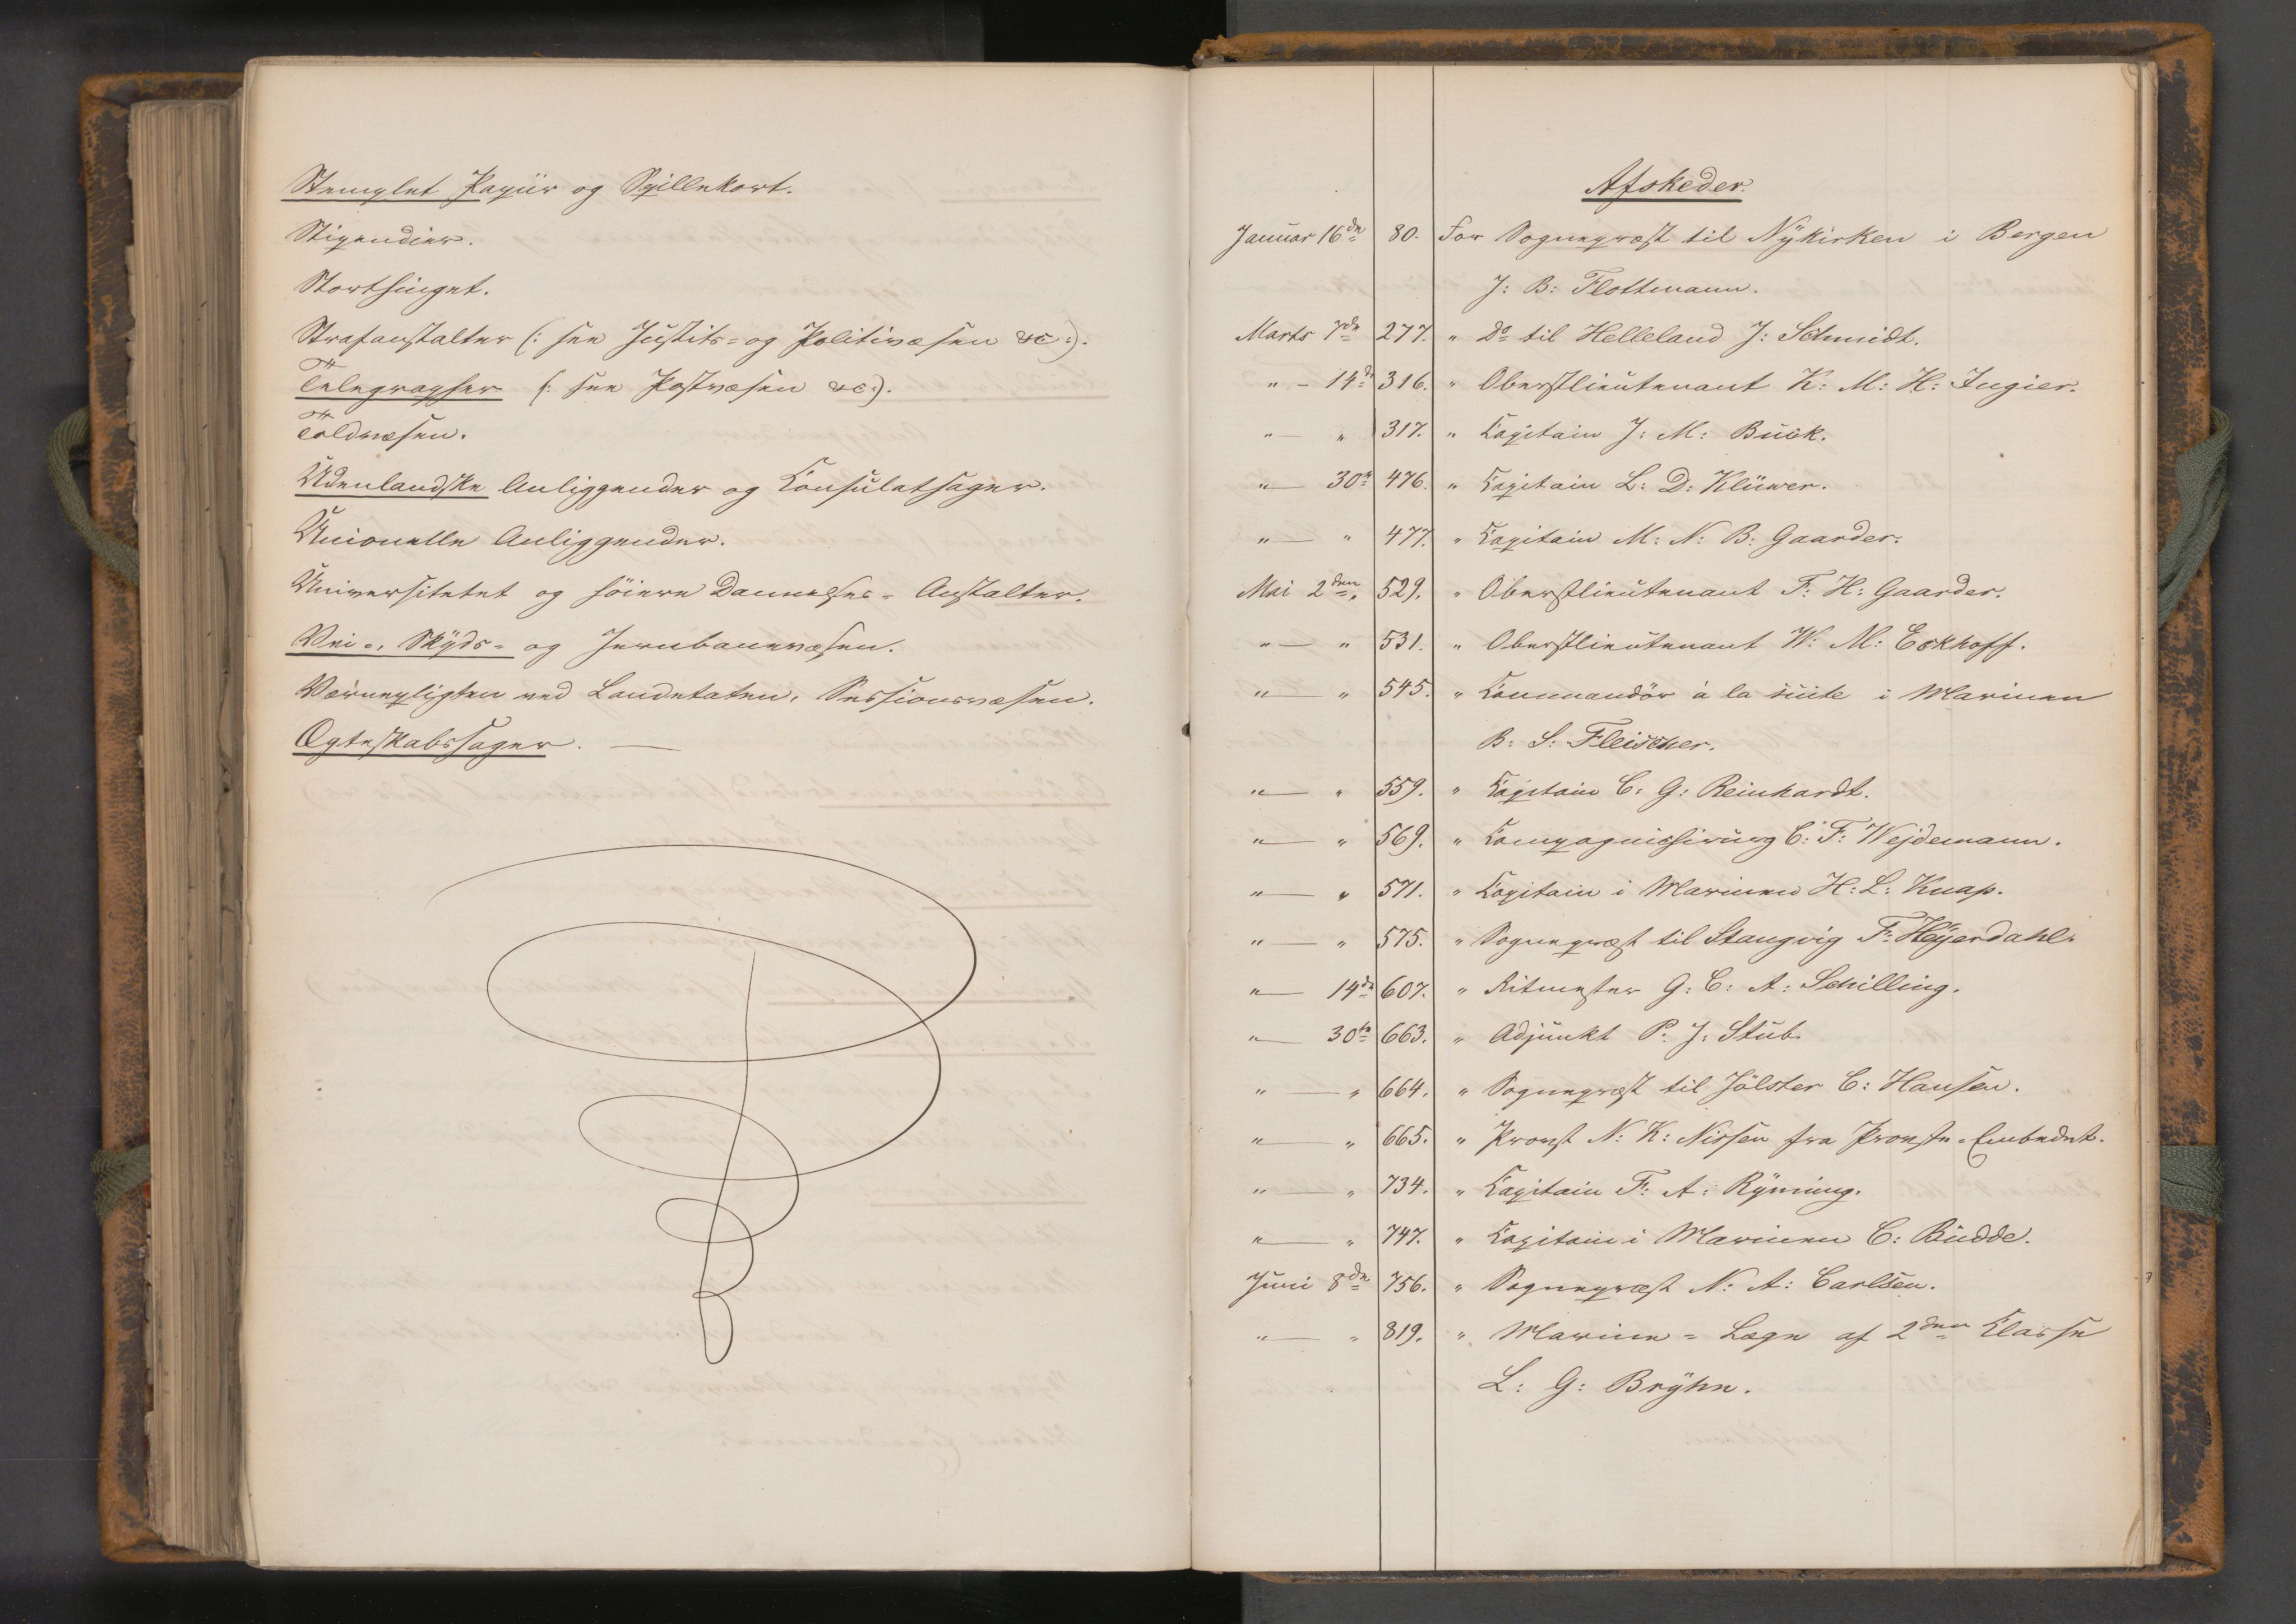 Stemplet Papiir og Spillekort.
Stipendier.
Storthinget.
Strafanstalter (: see Justits- og Politivæsen &c:).
Telegrapher (: see Postvæsen &c:).
Toldvæsen.
Udenlandske Anliggender og Consulatsager.
Unionelle Anliggender.
Universitetet og höiere Dannelses- Anstalter.
Vei-, Skÿds- og Jernbanevæsen.
Værnepligten ved Landetaten, Sessionsvæsen.
Ægteskabssager. —
Afskeder.
Januar 16de 80. For Sognepræst til Nÿkirken i Bergen
J: B: Flottmann.
Marts 7de 277. " Do til Helleland J: Schmidt.
" - 14de 316. " Oberstlieutenant K: M: H: Ingier.
" — " 317. " Capitain J: M: Buck.
" — 30te 476. " Capitain L: D: Klüwer.
" — " 477. " Capitain M: N: B: Gaarder.
Mai 2den 529. " Oberstlieutenant F: H: Gaarder.
" — " 531. " Oberstlieutenant W: M: Eckhoff.
" — " 545. " Commandör à la suite i Marinen
B: S: Fleischer.
" — " 559. " Capitain C: G: Reinhardt.
" — " 569. " Compagniechirurg C: F: Wejdemann.
" — " 571. " Capitain i Marinen H: L: Knap.
" — " 575. " Sognepræst til Stangvig F: Heÿerdahl.
" — 14de 607. " Ritmester G: C: A: Schilling.
" — 30te 663. " Adjunkt P: J: Stub.
" — " 664. " Sognepræst til Jölster C: Hansen.
" — " 665. " Provst N: K: Nissen fra Provste-Embedet.
" — " 734. " Capitain F: A: Rÿnning.
" — " 747. " Capitain i Marinen C: Budde.
Juni 8de 756. " Sognepræst N: A: Carlsen.
" — " 819. " Marine-Læge af 2den Classe
L: G: Brÿhn.